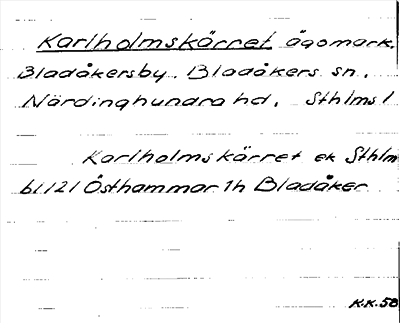 Karlholmskärret ägomark.
Bladåkersby. Bladåkers sn.
Närdinghundra hd. Sthlms l
Karlholmskärret ek Sthlm
bl 121 Östhammar 1h Bladåker
K.K. 58